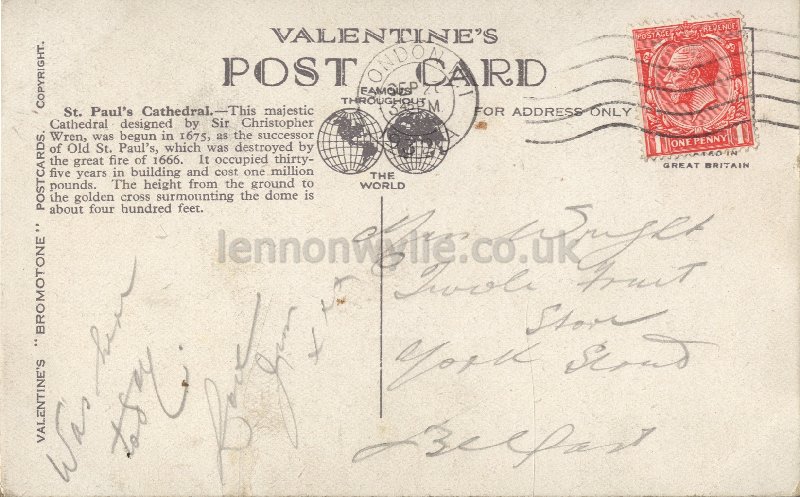 VALENTINE'S
POST CARD
FAMOUS
THROUGHOUT
THE
WORLD
FOR ADDRESS ONLY
LONDON
SEP
POSTAGE REVENUE
1 ONE PENNY 1
GREAT BRITAIN
VALENTINE'S "BROMOTONE" POSTCARDS. COPYRIGHT.
St. Paul's Cathedral.—This majestic
Cathedral designed by Sir Christopher
Wren, was begun in 1675, as the successor
of Old St. Paul's, which was destroyed by
the great fire of 1666. It occupied thirty-
five years in building and cost one million
pounds. The height from the ground to
the golden cross surmounting the dome is
about four hundred feet.
lennonwylie.co.uk
Was here
today.
Love
Jim
Wright
Fruit
Store
York Street
Belfast